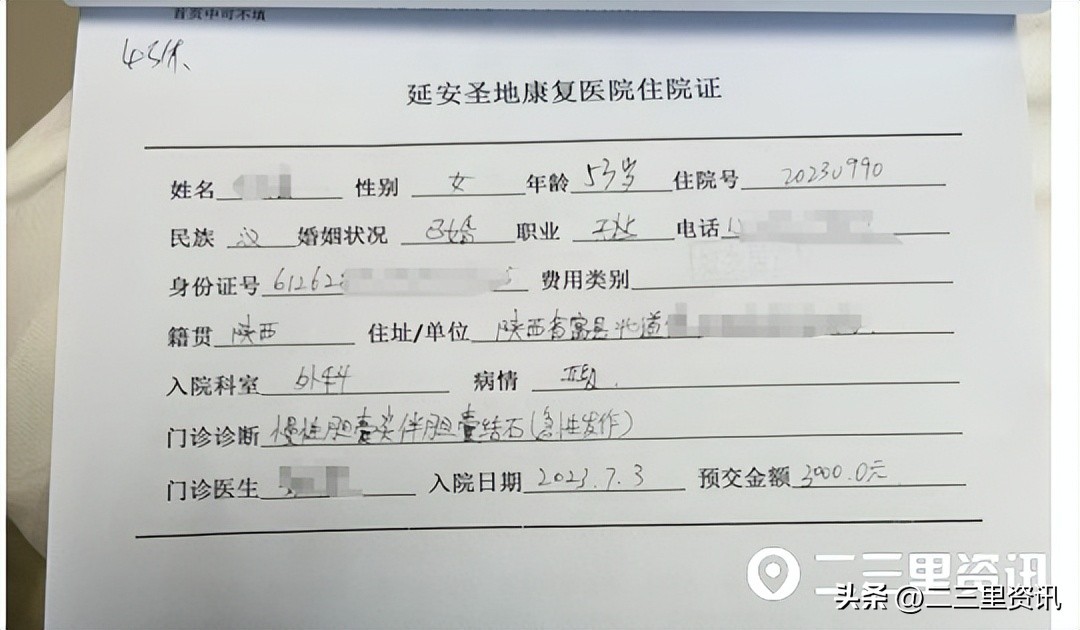 首页中可不填
43床
延安圣地康复医院住院证
姓名 性别 女 年龄 53岁 住院号 20230990
民族 汉 婚姻状况 已婚 职业 电话
身份证号 61262 5 费用类别
籍贯 陕西 住址/单位 陕西省富县北道
入院科室 外科 病情
门诊诊断 慢性胆囊炎伴胆囊结石(急性发作)
门诊医生 入院日期 2023.7.3 预交金额 3000.0元
二三里资讯
头条 @二三里资讯